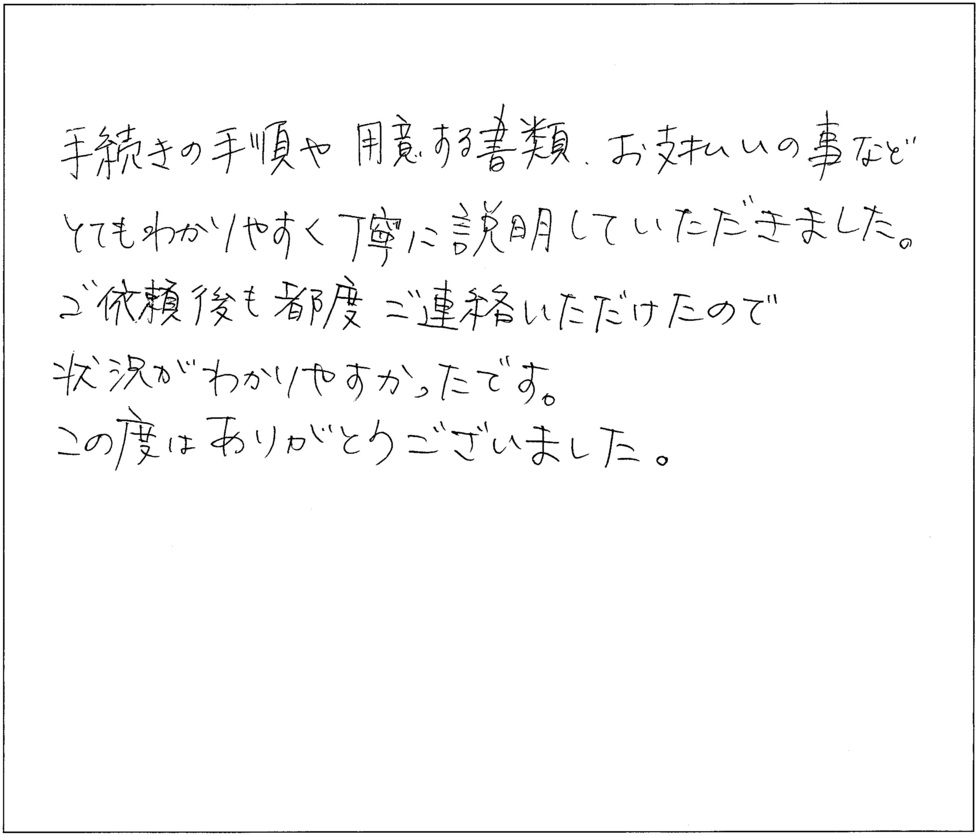 手続きの手順や用意する書類、お支払いの事など
とてもわかりやすく丁寧に説明していただきました。
ご依頼後も都度ご連絡いただけたので
状況がわかりやすかったです。
この度はありがとうございました。